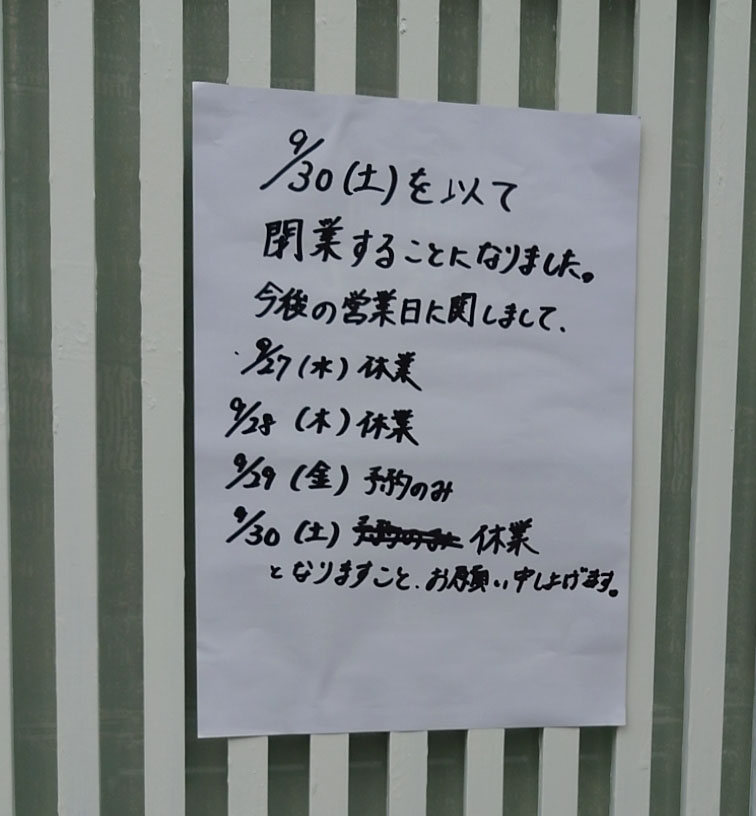 9/30(土)を以て
閉業することになりました。
今後の営業日に関しまして、
9/27(水)休業
9/28(木)休業
9/29(金)予約のみ
9/30(土)予約のみ 休業
となりますこと、お願い申し上げます。